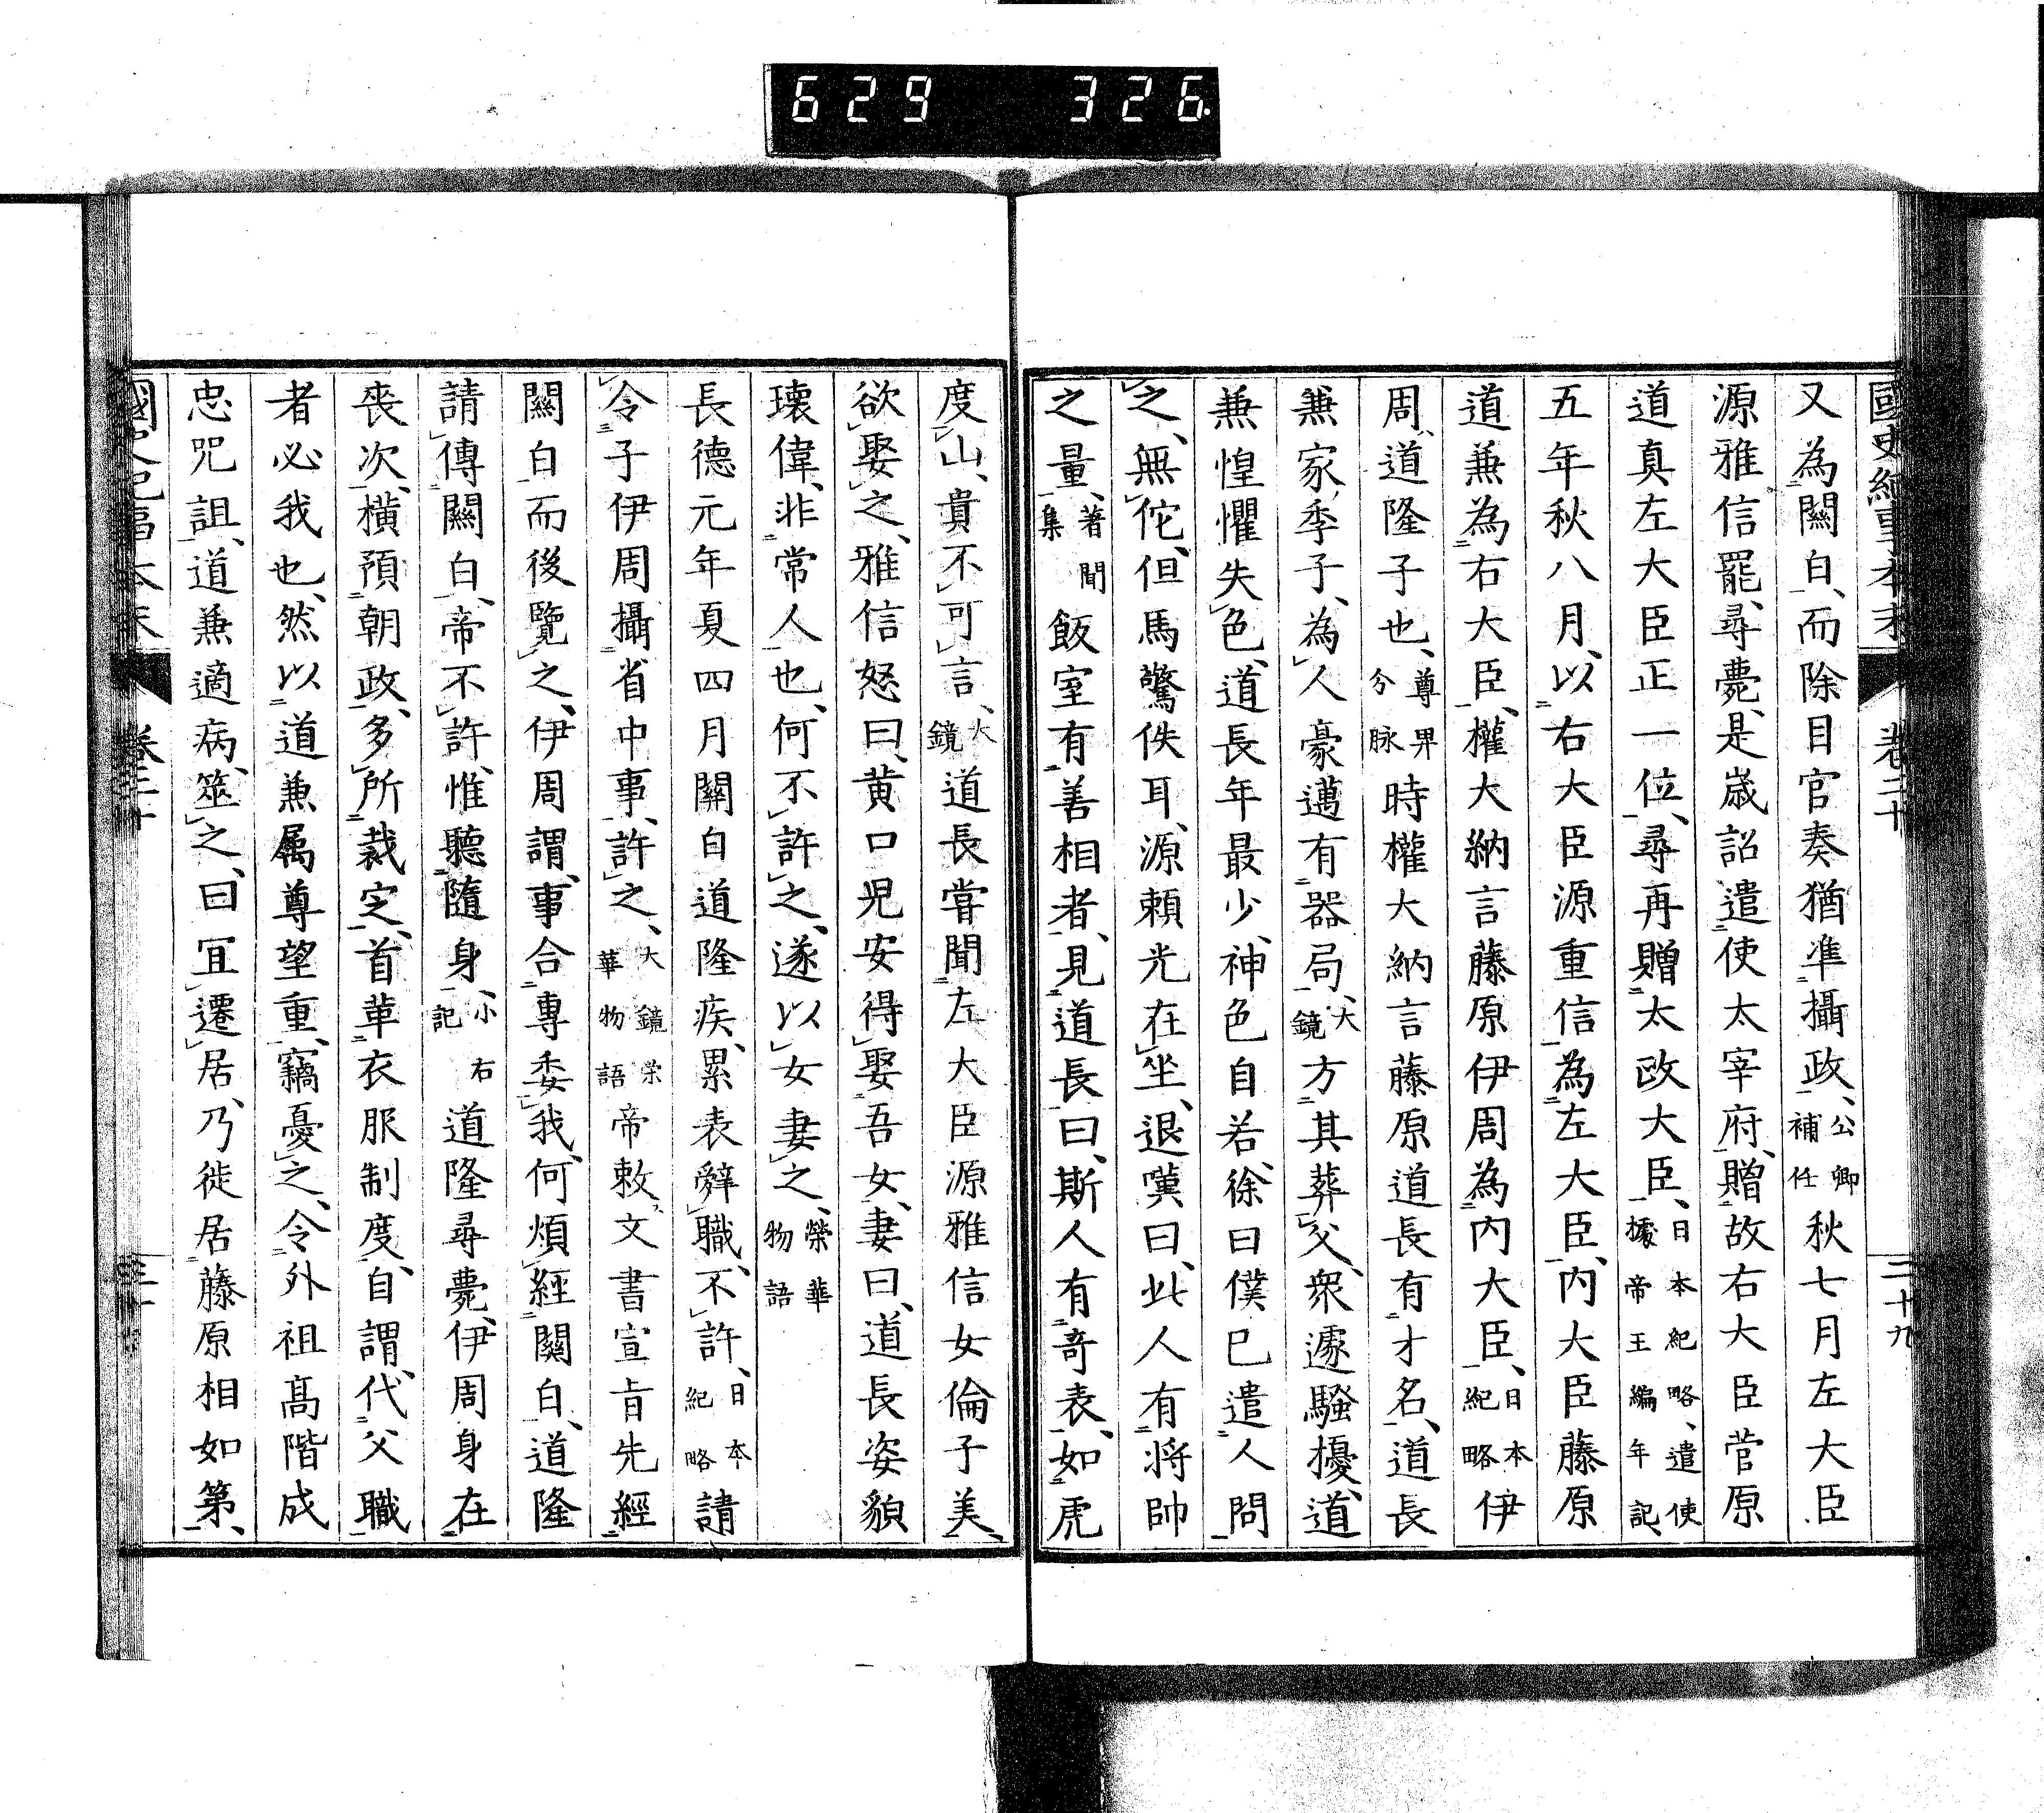 629 326
國史紀事本末 卷二十 二十九
又為關白、而除目官奏猶准攝政、公卿補任秋七月左大臣
源雅信罷、尋薨、是歳詔遣使太宰府、贈故右大臣菅原
道真左大臣正一位、尋再贈太政大臣、日本紀略、遣使據帝王編年記、
五年秋八月、以右大臣源重信為左大臣、內大臣藤原
道兼為右大臣、權大納言藤原伊周為內大臣、日本紀略伊
周、道隆子也、尊卑分脉時權大納言藤原道長有才名、道長
兼家季子、為人豪邁有器局、大鏡方其葬父、衆遽騷擾、道
兼惶懼失色、道長年最少、神色自若、徐曰僕已遣人問
之、無佗、但馬驚佚耳、源頼光在坐、退嘆曰、此人有将帥
之量、著聞集飯室有善相者、見道長曰、斯人有奇表、如虎
度山、貴不可言、大鏡道長嘗聞左大臣源雅信女倫子美、
欲娶之、雅信怒曰、黄口児安得娶吾女、妻曰、道長姿貌
瓌偉、非常人也、何不許之、遂以女妻之、榮華物語
長德元年夏四月關白道隆疾、累表辭職、不許、日本紀略請
令子伊周攝省中事、許之、大鏡榮華物語帝敕、文書宣旨先經
關白而後覽之、伊周謂、事合專委我、何煩經關白、道隆
請傳關白、帝不許、惟聽隨身、小右記道隆尋薨、伊周身在
喪次、橫預朝政、多所裁定、首革衣服制度、自謂、代父職
者必我也、然以道兼属尊望重、竊憂之、令外祖髙階成
忠咒詛、道兼適病、筮之、曰宜遷居、乃徙居藤原相如第、